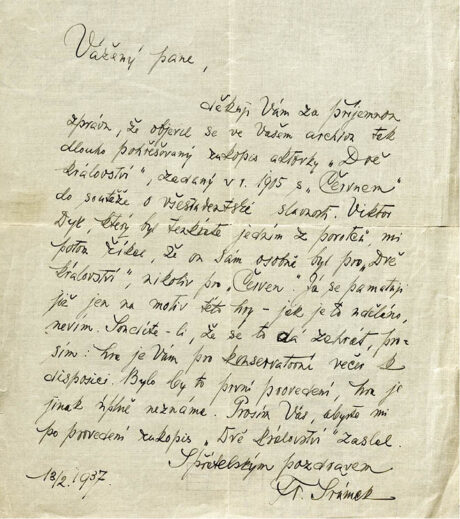 Vážený pane,
děkuji Vám za příjemnou
zprávu, že objevil se ve Vašem archivu tak
dlouho pohřešovaný rukopis aktovky „Dvě
království“, zadaný v r. 1905 s „Červnem“
do soutěže o všestudentské slavnosti. Viktor
Dyk, který byl tenkráte jedním z porotců, mi
potom říkal, že on sám osobně byl pro „Dvě
království“, nikoliv pro „Červen.“ Já se pamatuji
již jen na motiv této hry – jak je to uděláno,
nevím. Soudíte-li, že se to dá zahrát, pro-
sím: hra je Vám pro konservatorní večer k
disposici. Bylo by to první provedení, hra je
jinak úplně neznáma. Prosím Vás, abyste mi
po provedení rukopis „Dvě království“ zaslal.
S přátelským pozdravem
Fr. Šrámek
13/2. 1937.